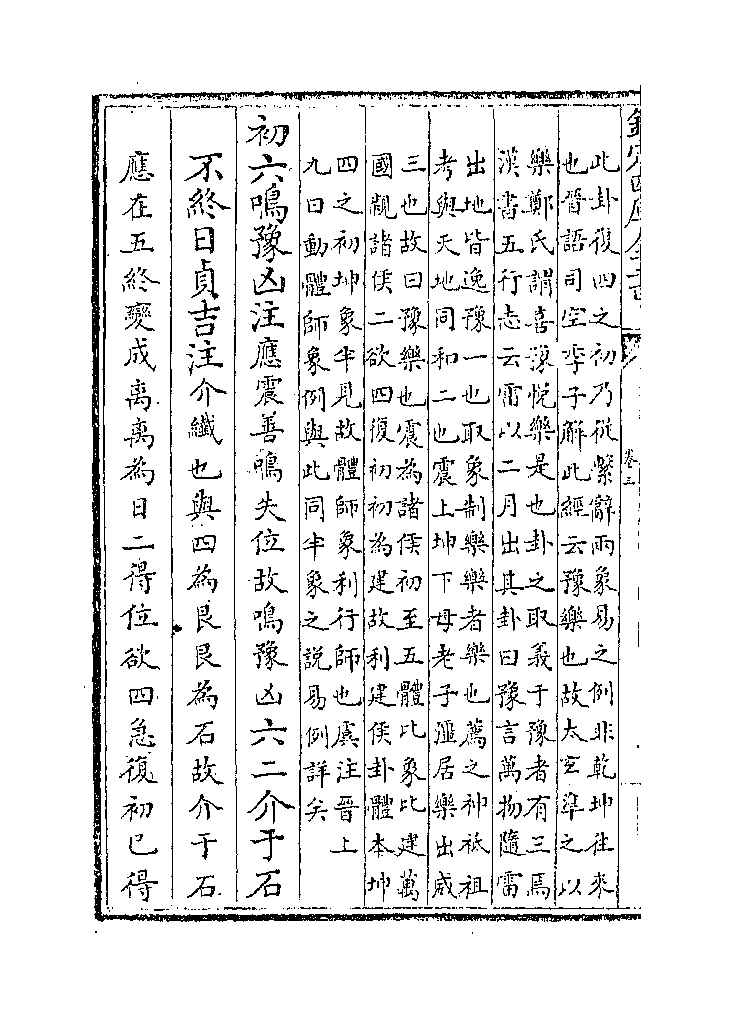 卷三
此卦復四之初乃從繫辭兩象易之例非乾坤往來
也晉語司空季子解此經云豫樂也故太玄準之以
樂鄭氏謂喜豫悅樂是也卦之取義于豫者有三焉
漢書五行志云雷以二月出其卦曰豫言萬物隨雷
出地皆逸豫一也取象制樂樂者樂也薦之神祇祖
考與天地同和二也震上坤下母老子强居樂出威
三也故曰豫樂也震為諸侯初至五體比象比建萬
國親諸侯二欲四復初初為建故利建侯卦體本坤
四之初坤象半見故體師象利行師也虞注晉上
九曰動體師象例與此同半象之說易例詳矣
初六鳴豫凶注應震善鳴失位故鳴豫凶六二介于石
不終日貞吉注介纖也與四為艮艮為石故介于石
應在五終變成離離為日二得位欲四急復初已得